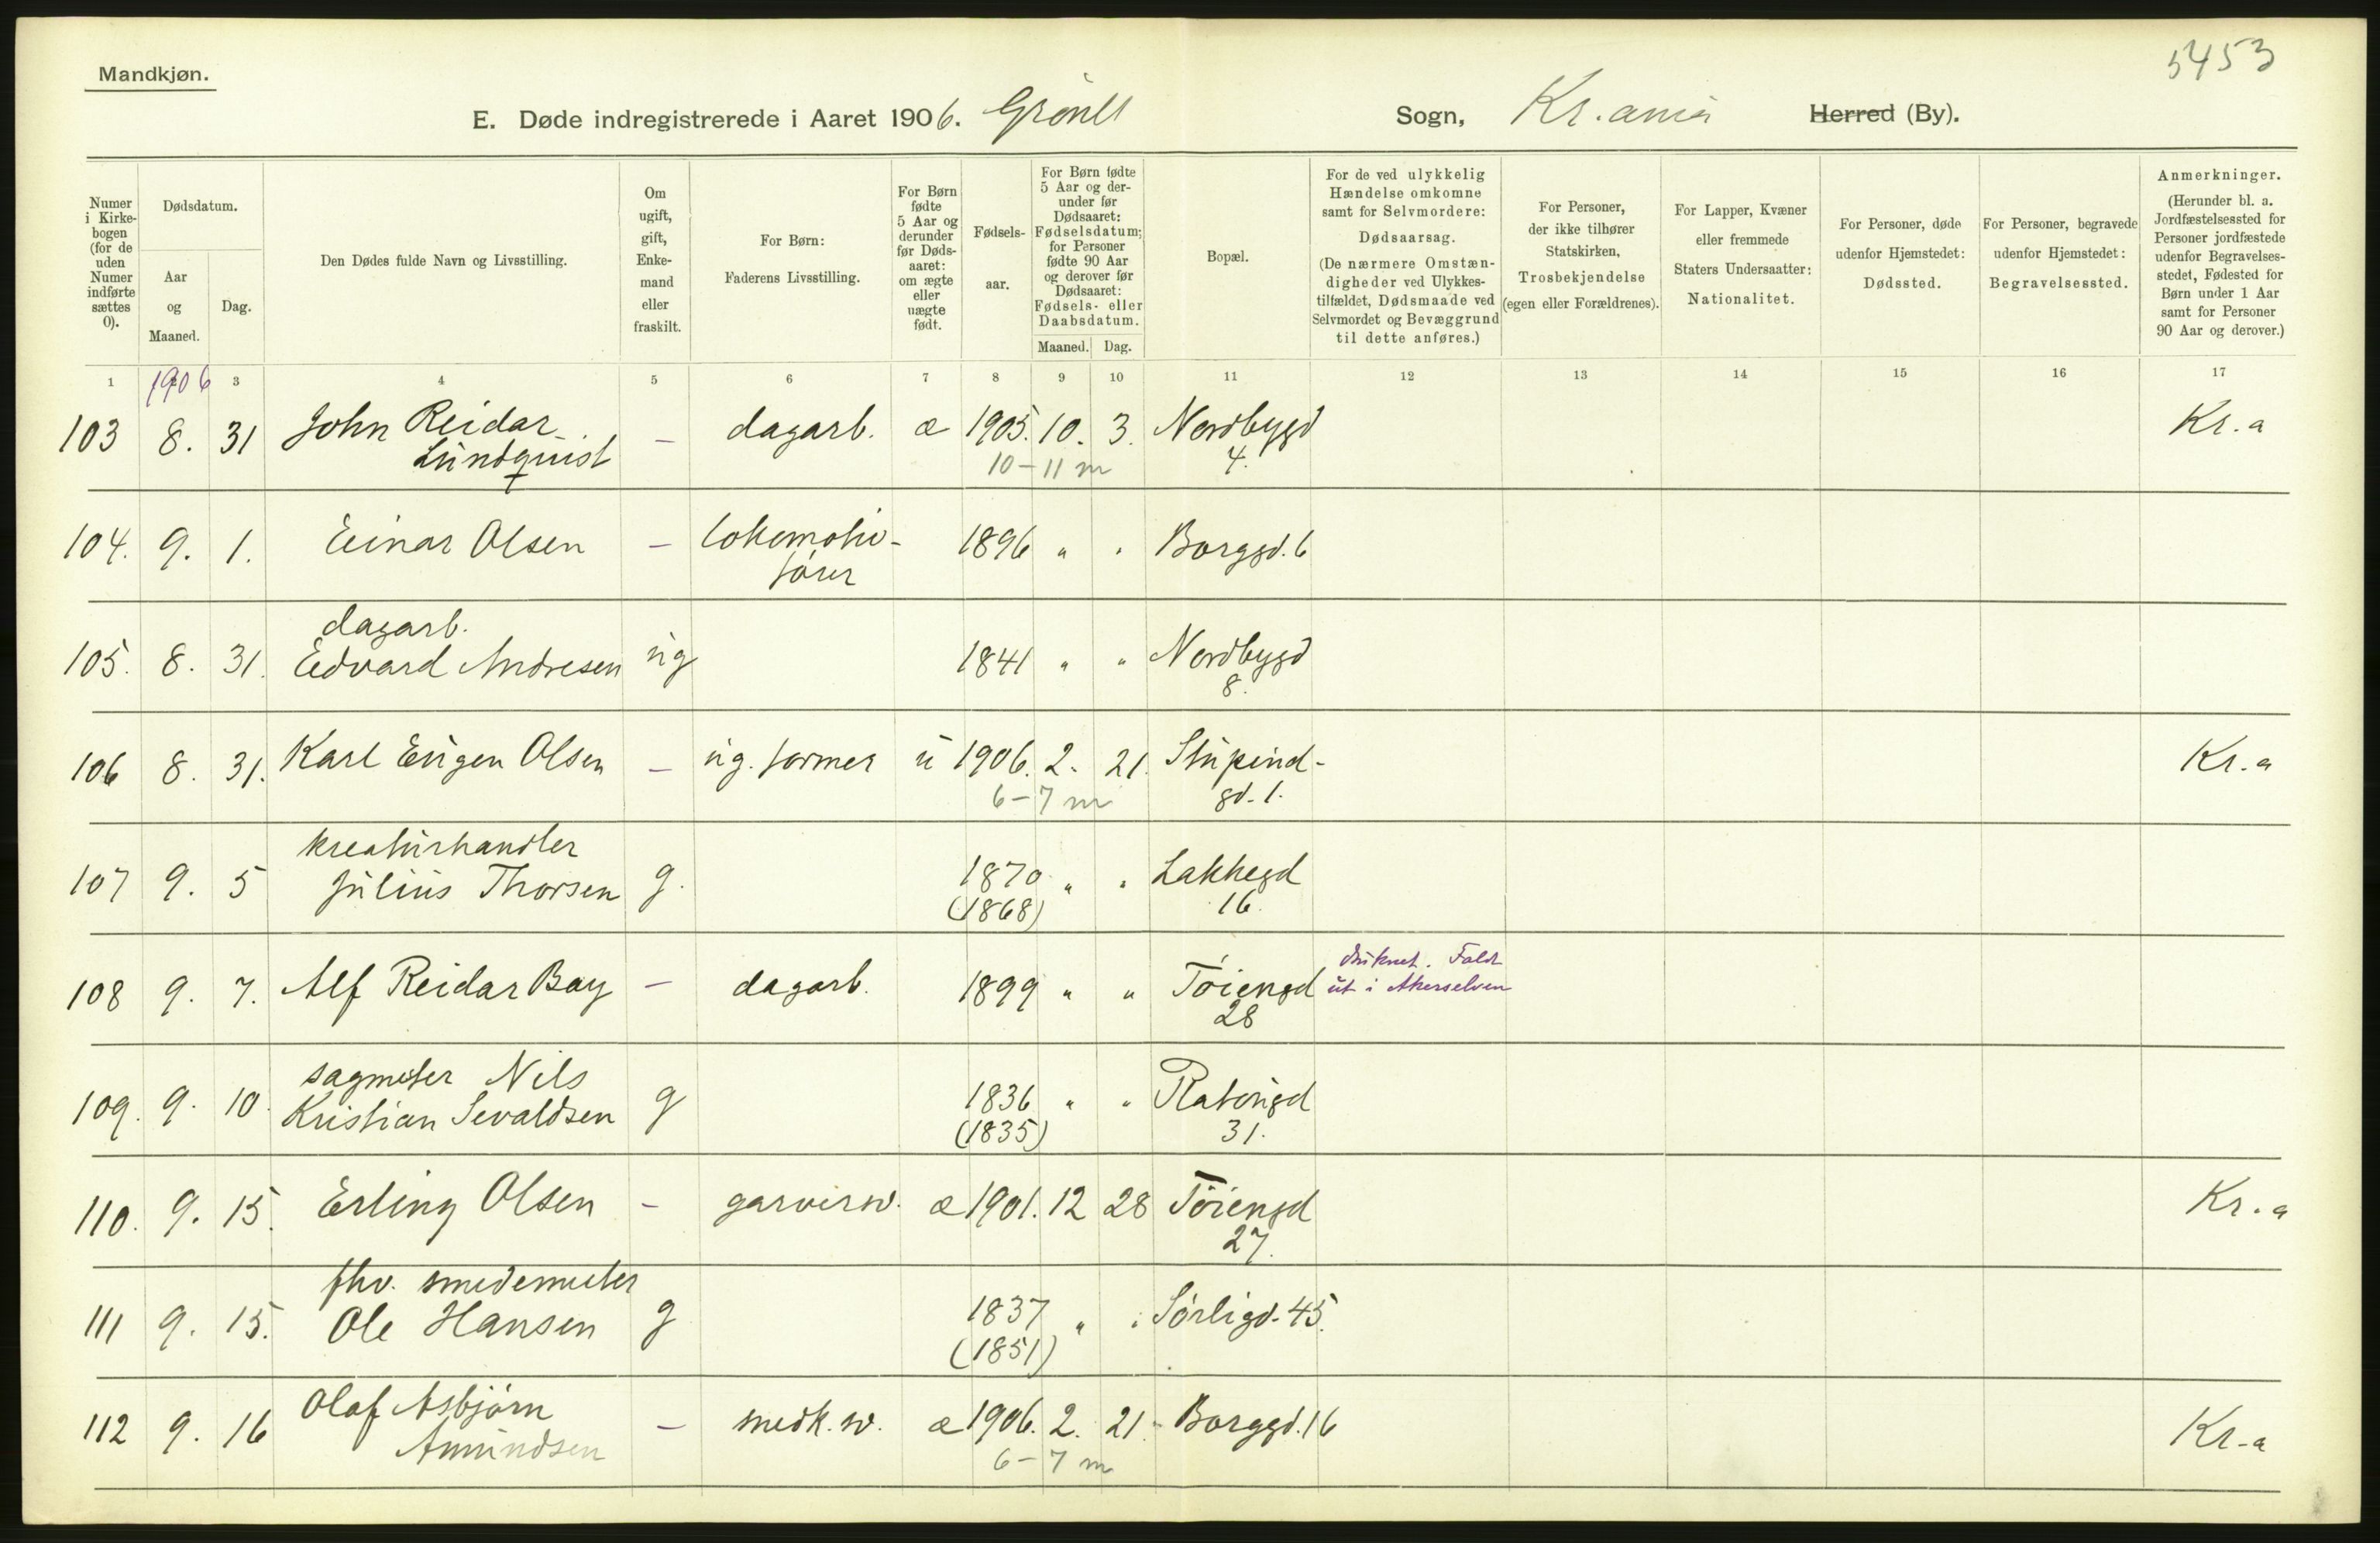 Mandkjøn.
5453
E. Døde indregistrerede i Aaret 1906. Grønl Sogn, Kr.ania Herred (By).
Numer i Kirkebogen (for de uden Numer indførte sættes 0).
Dødsdatum.
Aar og Maaned.
Dag.
Den Dødes fulde Navn og Livsstilling.
Om ugift, gift, Enkemand eller fraskilt.
For Børn: Faderens Livsstilling.
For Børn fødte 5 Aar og derunder før Dødsaaret: om ægte eller uægte født.
Fødselsaar.
For Børn fødte 5 Aar og derunder før Dødsaaret: Fødselsdatum; for Personer fødte 90 Aar og derover før Dødsaaret: Fødsels- eller Daabsdatum.
Maaned. Dag.
Bopæl.
For de ved ulykkelig Hændelse omkomne samt for Selvmordere: Dødsaarsag. (De nærmere Omstændigheder ved Ulykkestilfældet, Dødsmaade ved Selvmordet og Bevæggrund til dette anføres.)
For Personer, der ikke tilhører Statskirken, Trosbekjendelse (egen eller Forældrenes).
For Lapper, Kvæner eller fremmede Staters Undersaatter: Nationalitet.
For Personer, døde udenfor Hjemstedet: Dødssted.
For Personer, begravede udenfor Hjemstedet: Begravelsessted.
Anmerkninger. (Herunder bl. a. Jordfæstelsessted for Personer jordfæstede udenfor Begravelsesstedet, Fødested for Børn under 1 Aar samt for Personer 90 Aar og derover.)
1 1906 3 4 5 6 7 8 9 10 11 12 13 14 15 16 17
103 8. 31 John Reidar - dagarb. æ 1905. 10. 3. Nordbygd Kr.a
Lundquist 10-11 m 4.
104. 9. 1. Einar Olsen - lokomotiv- 1896 " " Borggd. 6
fører
dagarb.
105. 8. 31. Edvard Andresen ug 1841 " " Nordbygd
8.
106 8. 31. Karl Eugen Olsen - ug. former u 1906. 2. 21. Stupind- Kr.a
6-7 m gd. 1.
kreaturhandler
107 9. 5 Julius Thorsen g. 1870 " " Lakkegd
(1868) 16.
108 9. 7. Alf Reidar Bay - dagarb. 1899 " " Tøiengd druknet. Faldt
28 ut i Akerselven
sagmester Nils
109. 9. 10. Kristian Sevaldsen g 1836 " " Platougd
(1835) 31.
110. 9. 15. Erling Olsen - garversv. æ 1901. 12 28 Tøiengd Kr.a
27.
fhv. smedemester
111 9. 15. Ole Hansen g 1837 " " Sørligd. 45.
(1851)
112 9. 16 Olaf Asbjørn - smedk.sv. æ 1906. 2. 21. Borggd. 16 Kr.a
Amundsen 6-7 m